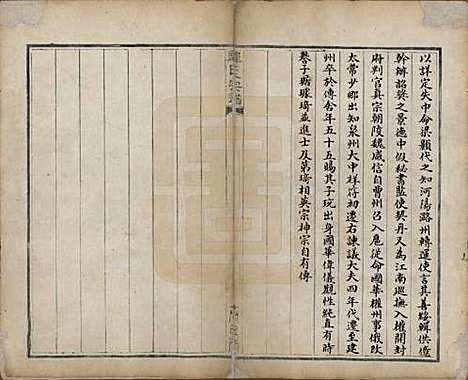 以詳定失中命梁顥代之知河陽潞州轉運使言其善綏輯供億
幹辦詔獎之景德中假秘書監使契丹又為江南巡撫入權開封
府判官真宗朝陵魏咸信自曹州召入扈從命國華權州事俄改
太常少卿出知泉州大中祥符初遷右諫議大夫四年代還至建
州卒於傳舍年五十五賜其子玩出身國華偉儀觀性純直有時
譽子琚璩琦並進士及第琦相英宗神宗自有傳